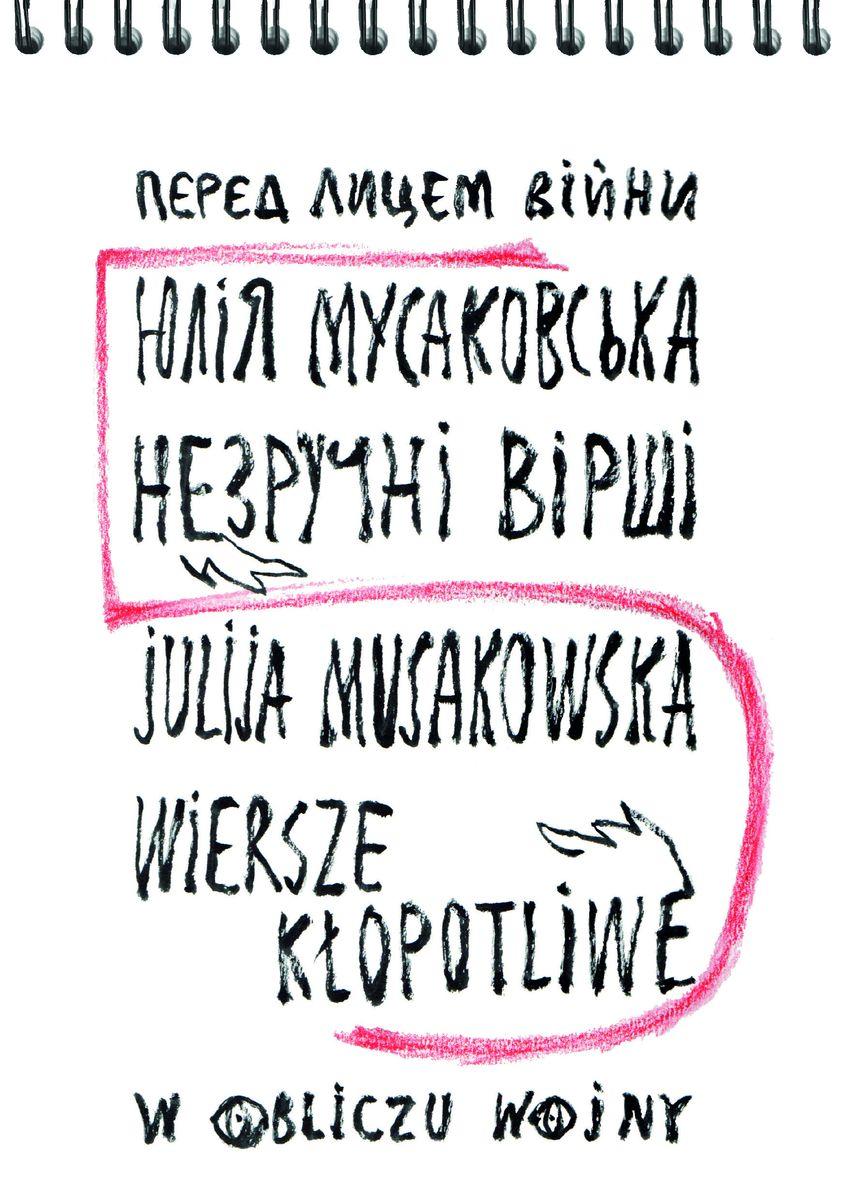 ПЕРЕД ЛИЦЕМ ВІЙНИ
ЮЛІЯ МУСАКОВСЬКА
НЕЗРУЧНІ ВІРШІ
JULIJA MUSAKOWSKA
WIERSZE
KŁOPOTLIWE
W OBLICZU WOJNY